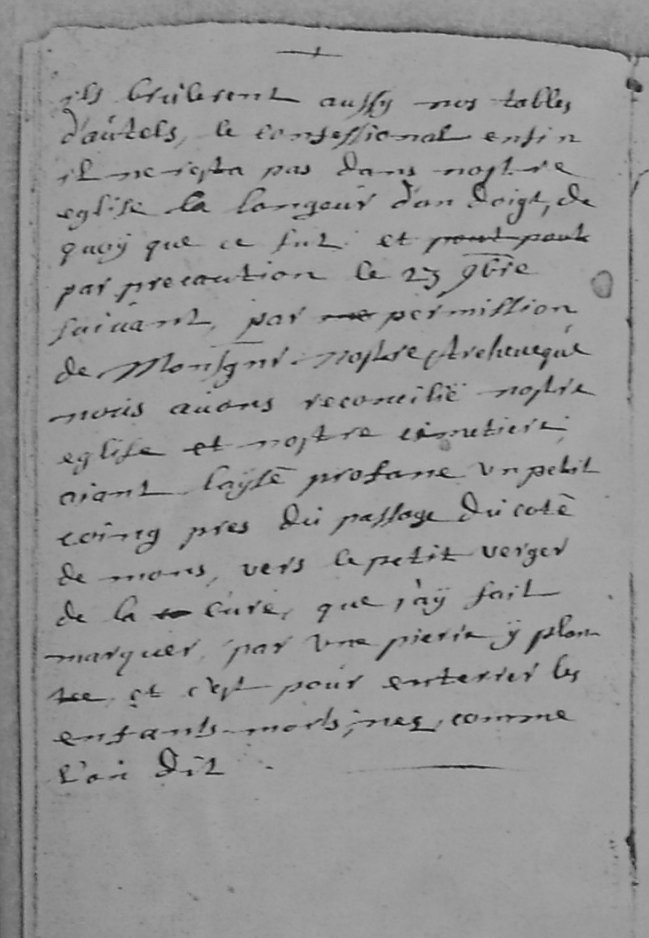 ils brulerent aussy nos tables
d'autels, le confessional enfin
il ne resta pas dans nostre
eglise la longeur d'un doigt, de
quoÿ que ce fut. et pour
par precaution le 23 9bre
suivant, par permission
de Monsgnr. nostre Archeveque
nous avons reconcilié nostre
eglise et nostre cimetiere,
aiant laÿsé profane un petit
coing pres du passage du coté
de mons, vers le petit verger
de la cure, que j'aÿ fait
marquer, par une pierre ÿ plan
tee et c'est pour enterrer les
enfants morts,nez, comme
l'on dit